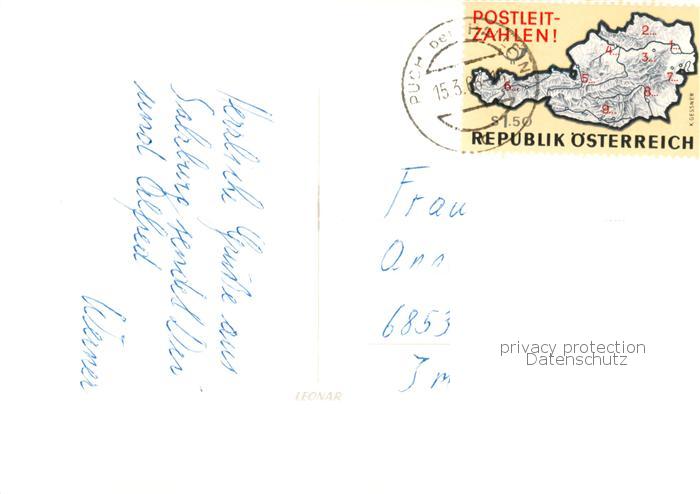 POSTLEIT-
ZAHLEN!
2...
1...
4...
3...
7...
5...
6...
8...
9...
K. GESSNER
S 1.50
REPUBLIK ÖSTERREICH
PUCH bei HALLEIN
15.3.
Herzliche Grüße aus
Salzburg sendet Dir
und Alfred
Werner
Frau
Ann
6853
LEONAR
privacy protection
Datenschutz